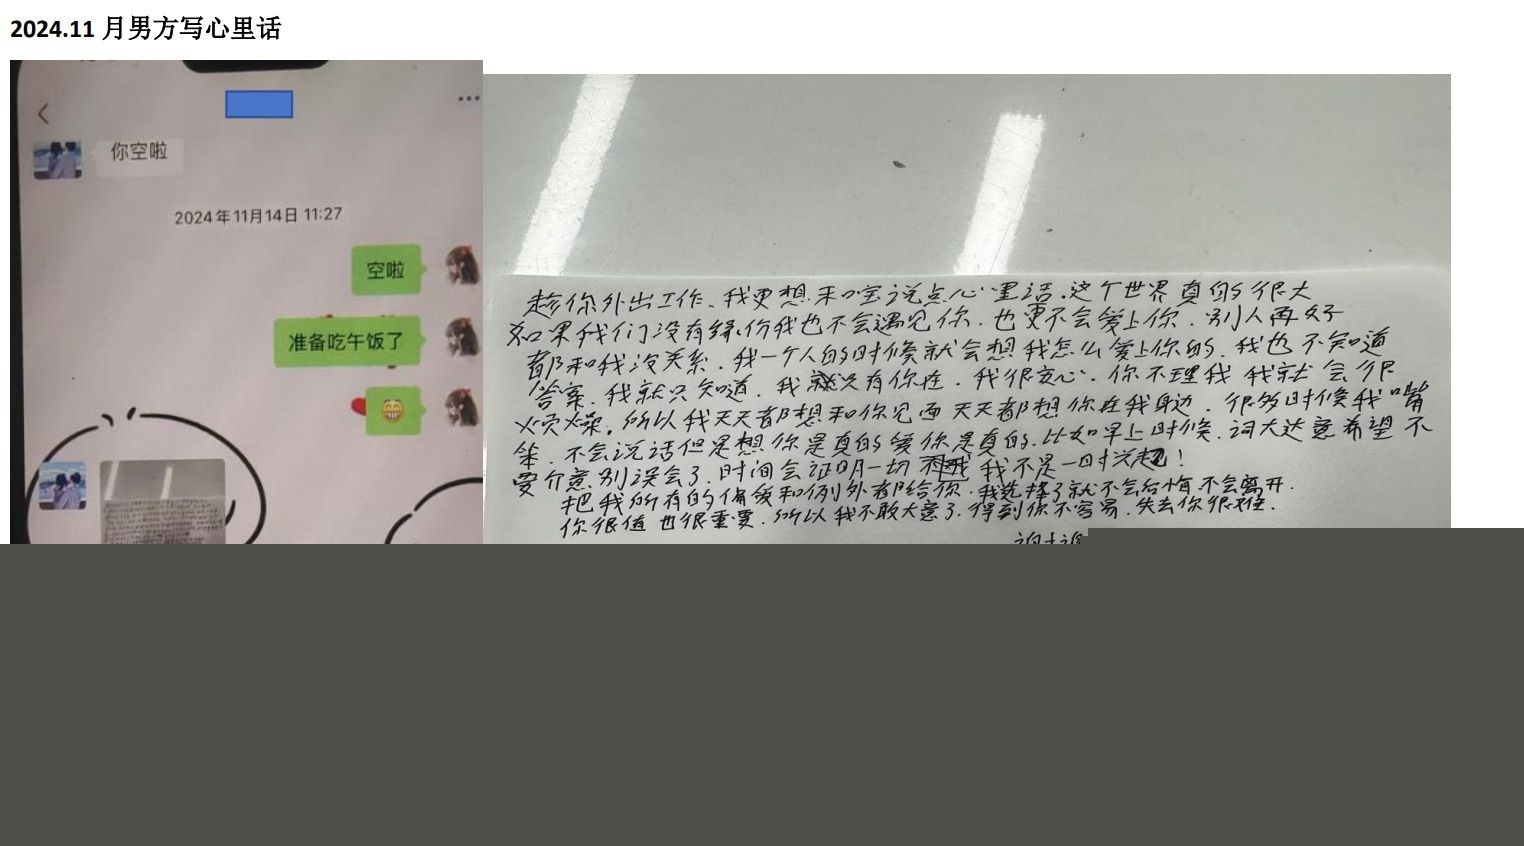 2024.11 月男方写心里话
你空啦
2024年11月14日 11:27
空啦
准备吃午饭了
趁你外出工作、我更想和宝说点心里话.这个世界真的很大
如果我们没有缘份我也不会遇见你.也更不会爱上你.别人再好
都和我没关系.我一个人的时候就会想我怎么爱上你的.我也不知道
答案.我就只知道.我就只有你在.我很安心.你不理我我就会很
烦燥。所以我天天都想和你见面天天都想你在我身边.很多时候我嘴
笨.不会说话但是想你是真的爱你是真的.比如早上时候.词大达意希望不
要介意别误会了.时间会证明一切 我不是一时兴起!
把我所有的偏爱和例外都给你.我选择了就不会后悔不会离开.
你很值也很重要.所以我不敢大意了.得到你不容易.失去你很难.